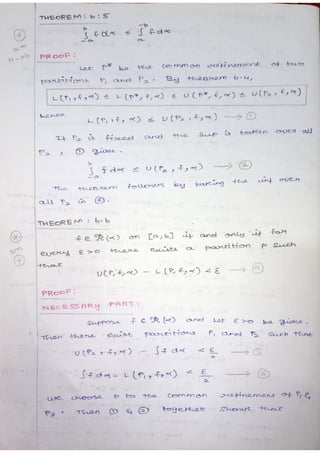 THEOREM : 6.5
∫ f dα ≤ ∫ f dα
PROOF :
Let P* be the common refinement of two
partitions P₁ and P₂. By theorem 6.4,
L(P₁, f, α) ≤ L(P*, f, α) ≤ U(P*, f, α) ≤ U(P₂, f, α)
hence
L(P₁, f, α) ≤ U(P₂, f, α) → ①
If P₂ is fixed and the sup is taken over all
P₁, ① gives.
∫ f dα ≤ U(P₂, f, α) → ②
The theorem follows by taking the inf over
all P₂ in ②.
THEOREM : 6.6
f ∈ R(α) on [a, b] if and only if for
every ε > 0 there exists a partition P such
that
U(P, f, α) - L(P, f, α) < ε →
PROOF :
NECESSARY PART :
Suppose f ∈ R(α) and let ε > 0 be given.
Then there exist partitions P₁ and P₂ such that
U(P₂, f, α) - ∫f dα < ε/2 → ①
∫f dα - L(P₁, f, α) < ε/2 → ②
we choose P to the common refinement of P₁ &
P₂. Then ① & ② together shows that